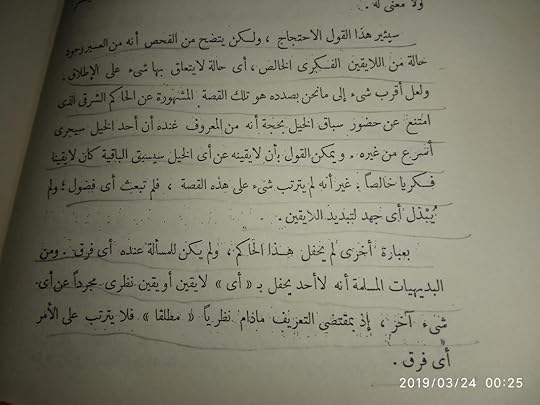 ولا معنى له .
سيثير هذا القول الاحتجاج ، ولكن يتضح من الفحص أنه من العسير وجود
حالة من اللايقين الفكرى الخالص ، أى حالة لايتعلق بها شىء على الإطلاق .
ولعل أقرب شىء إلى مانحن بصدده هو تلك القصة المشهورة عن الحاكم الشرقى الذى
امتنع عن حضور سباق الخيل بحجة أنه من المعروف عنده أن أحد الخيل سيجرى
أسرع من غيره . ويمكن القول بأن لايقينه عن أى الخيل سيسبق الباقية كان لايقينا
فكريا خالصاً . غير أنه لم يترتب شىء على هذه القصة ، فلم تبعث أى فضول ؛ ولم
يُبْذل أى جهد لتبديد اللايقين .
بعبارة أخرى لم يحفل هذا الحاكم ، ولم يكن للمسألة عنده أى فرق . ومن
البديهيات المسلمة أنه لا أحد يحفل بـ « أى » لايقين أو يقين نظرى مجرداً عن أى
شىء آخر ، إذ بمقتضى التعريف مادام نظرياً « مطلقا » فلا يترتب على الأمر
أى فرق .
2019/03/24 00:25